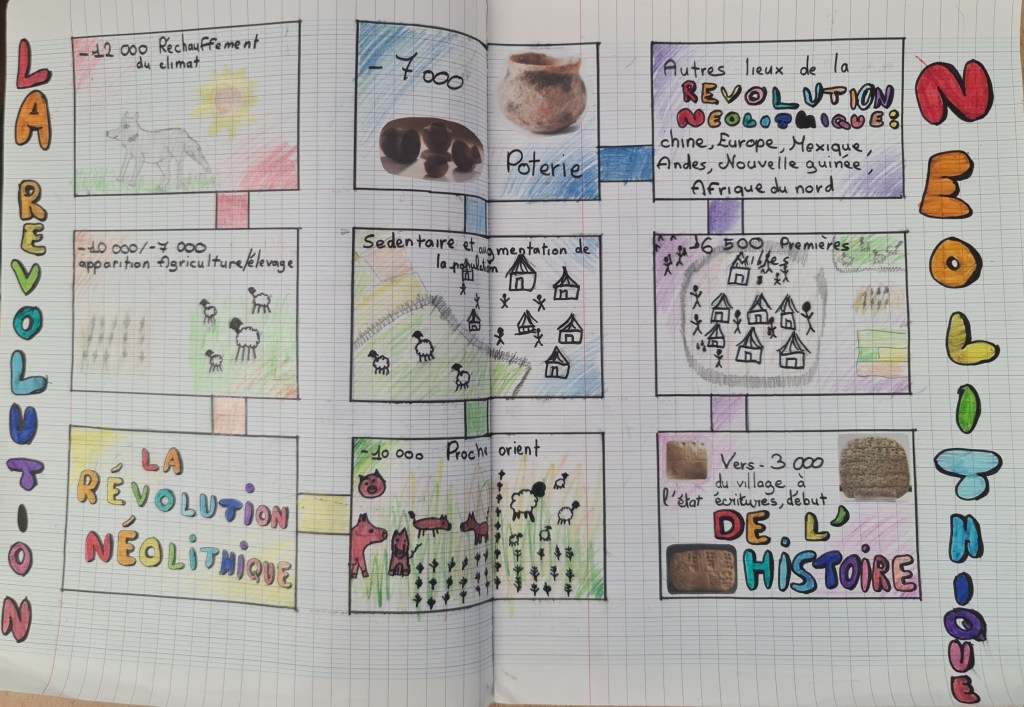 LA REVOLUTION
- 12 000 Réchauffement
du climat
- 10 000/- 7 000
apparition Agriculture/élevage
LA
RÉVOLUTION
NÉOLITHIQUE
- 10 000 Proche orient
Sedentaire et augmentation de
la population
- 7 000
Poterie
Autres lieux de la
REVOLUTION
NEOLITHIQUE:
chine, Europe, Mexique,
Andes, Nouvelle guinée,
Afrique du nord
- 6 500 Premières
Villes
Vers - 3 000
du village à
l'état écritures, début
DE L'
HISTOIRE
NEOLITHIQUE